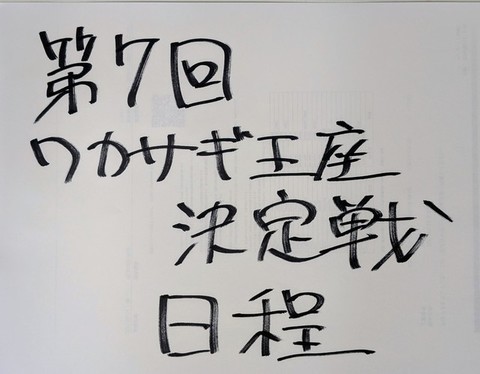 第7回
ワカサギ王座
決定戦
日程